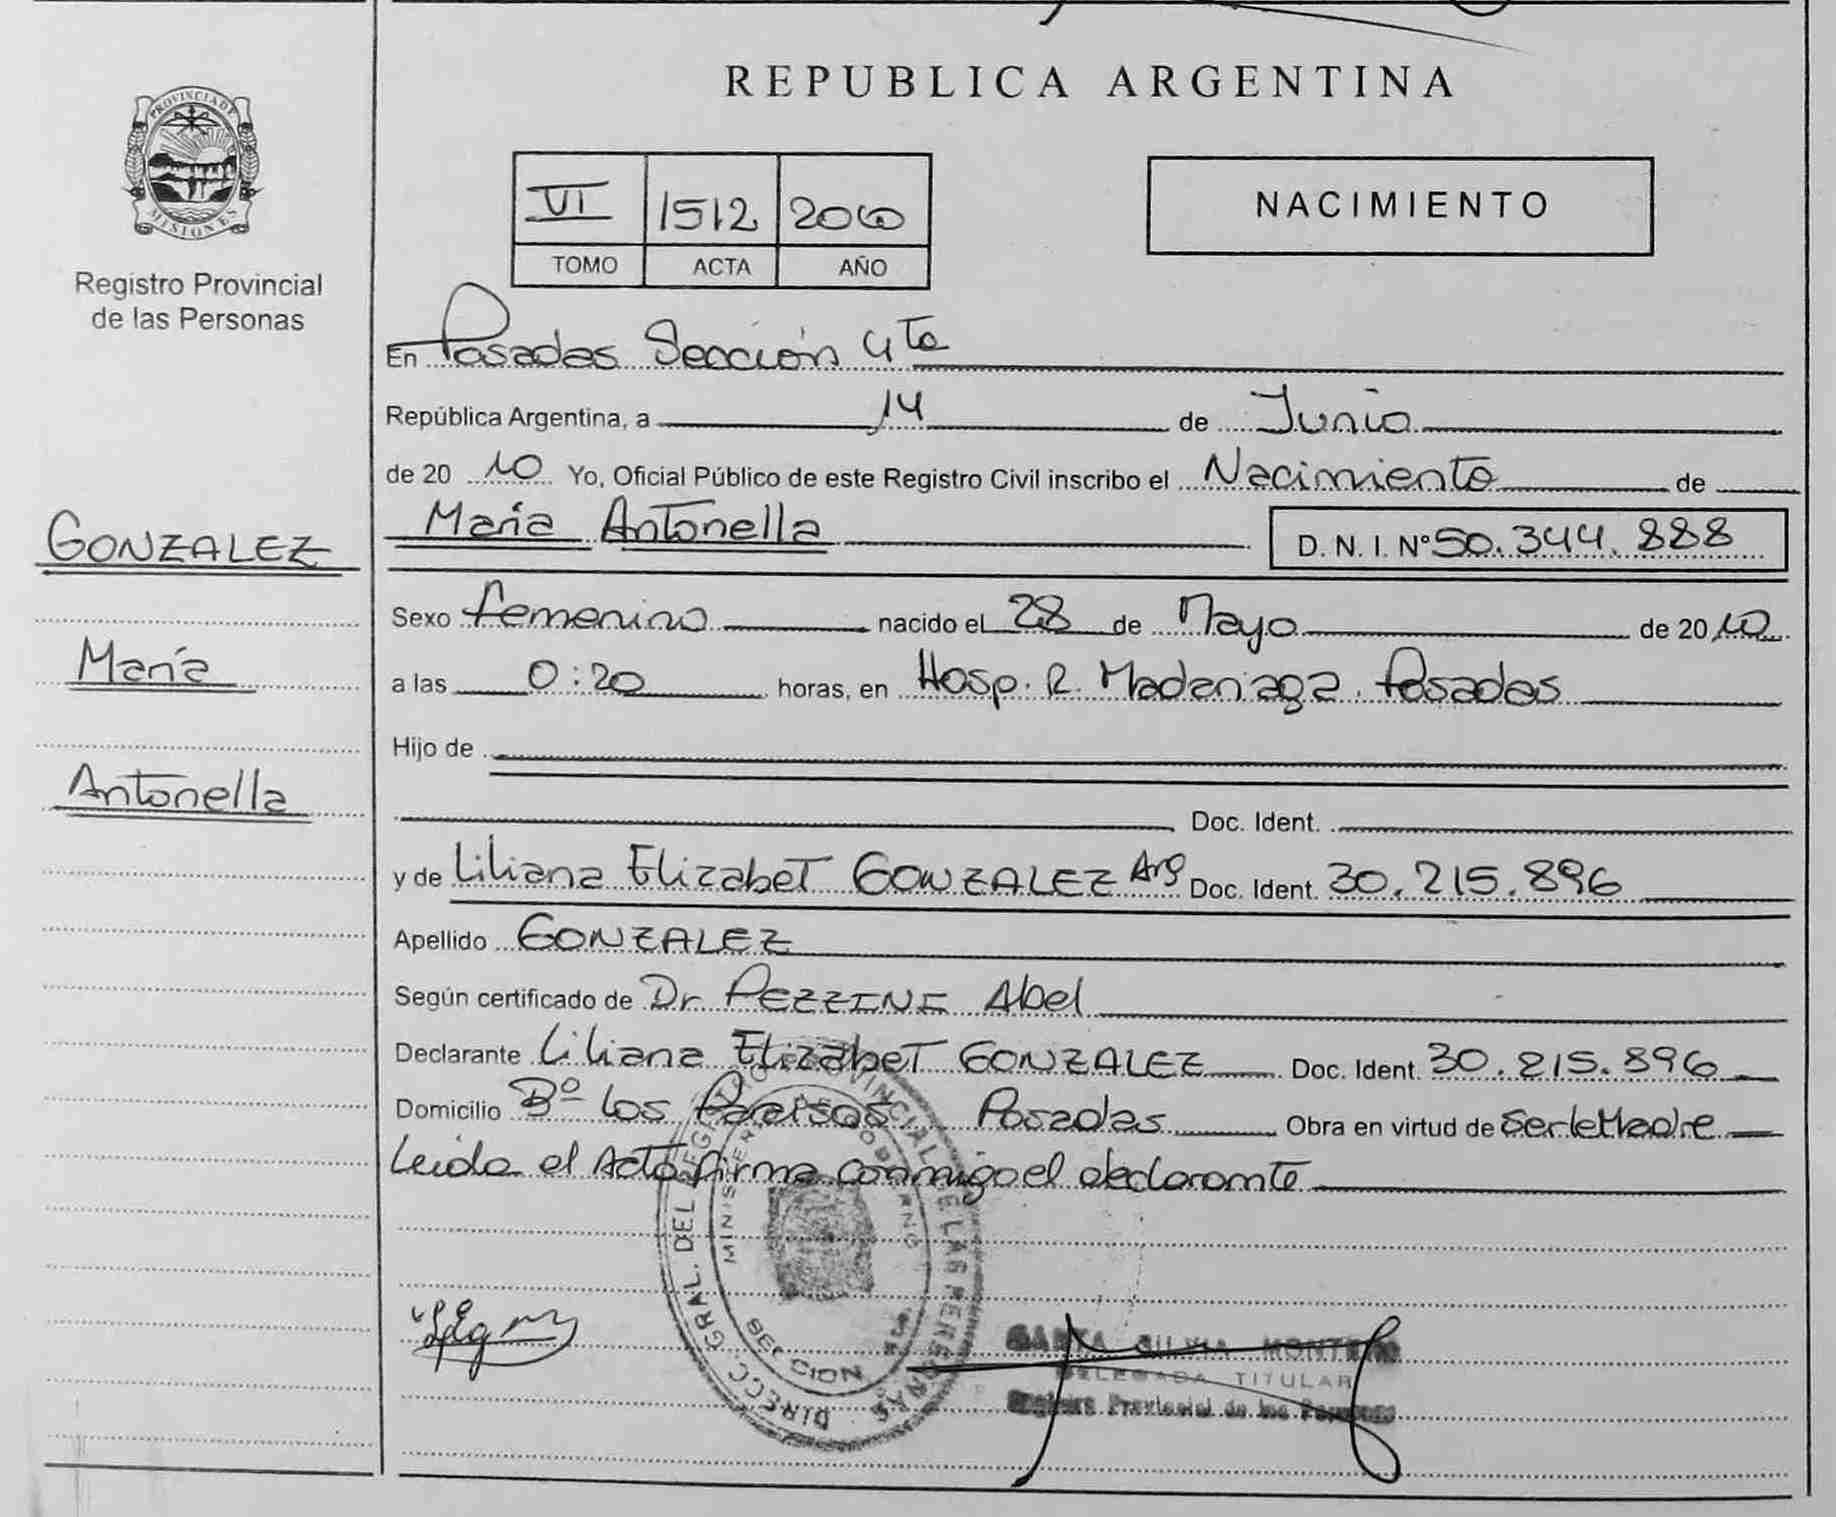 REPUBLICA ARGENTINA
PROVINCIA DE
MISIONES
Registro Provincial
de las Personas
VI 1512 2010
TOMO ACTA AÑO
NACIMIENTO
En Posadas Sección 4ta
República Argentina, a 14 de Junio
de 20 10 Yo, Oficial Público de este Registro Civil inscribo el Nacimiento de
María Antonella D. N. I. Nº 50.344.888
GONZALEZ
María
Antonella
Sexo femenino nacido el 28 de Mayo de 20 10
a las 0:20 horas, en Hosp. R. Madariaga. Posadas
Hijo de
Doc. Ident.
y de Liliana Elizabet GONZALEZ Arg Doc. Ident. 30.215.896
Apellido GONZALEZ
Según certificado de Dr. PEZZINE Abel
Declarante Liliana Elizabet GONZALEZ Doc. Ident. 30.215.896
Domicilio Bº Los Paraisos Posadas Obra en virtud de Ser la Madre
Leida el Acta firma conmigo el declarante
DIRECC. GRAL. DEL REGISTRO PROVINCIAL DE LAS PERSONAS
MINISTERIO DE GOBIERNO
SILVIA MONTERO
DELEGADA TITULAR
Registro Provincial de las Personas